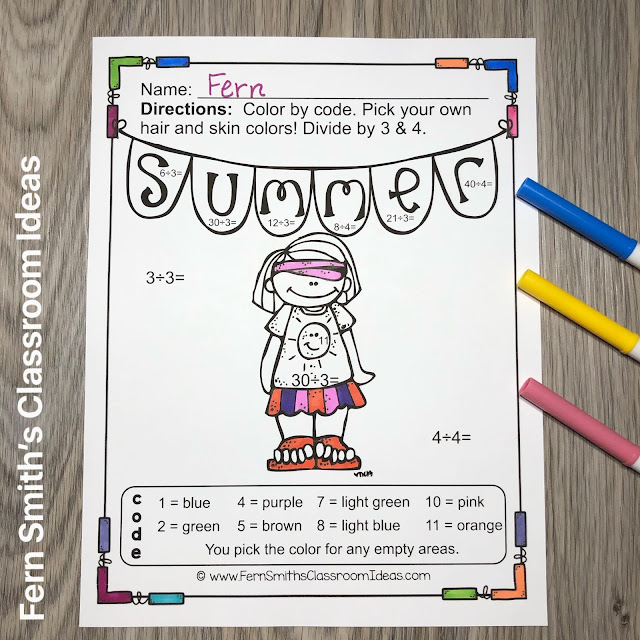 Fern Smith's Classroom Ideas
Name: Fern
Directions: Color by code. Pick your own
hair and skin colors! Divide by 3 & 4.
Summer
6÷3=
30÷3=
12÷3=
8÷4=
21÷3=
40÷4=
3÷3=
11
30÷3=
4÷4=
code
1 = blue 4 = purple 7 = light green 10 = pink
2 = green 5 = brown 8 = light blue 11 = orange
You pick the color for any empty areas.
© www.FernSmithsClassroomIdeas.com